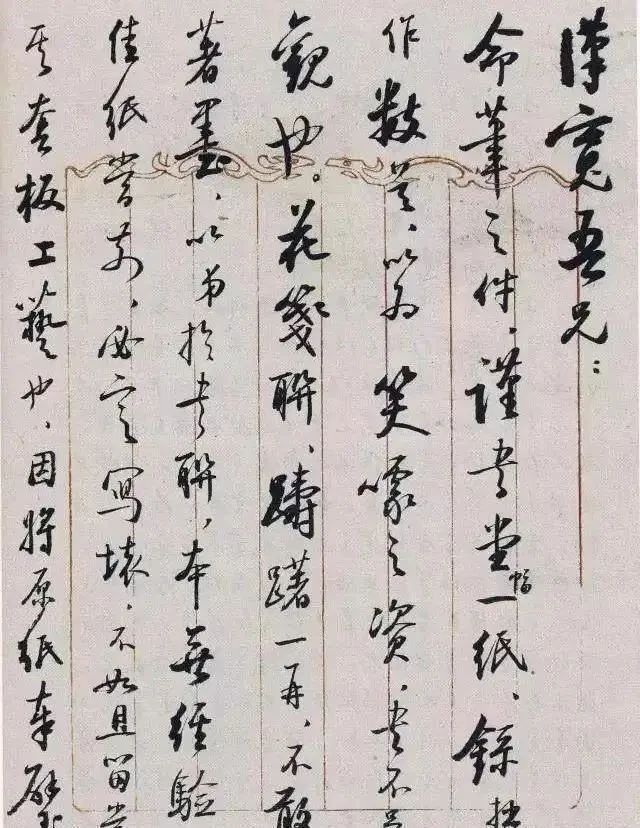 漢寬吾兄：
命筆之件、謹書堂幅一紙、錄拙
作數首、以為笑噱之資、書不足
觀也。花箋聯、躊躇一再、不敢
著墨、以弟於書聯，本無經驗
佳紙當前、必定寫壞、不如且留賞
其套板工藝也、因將原紙奉璧